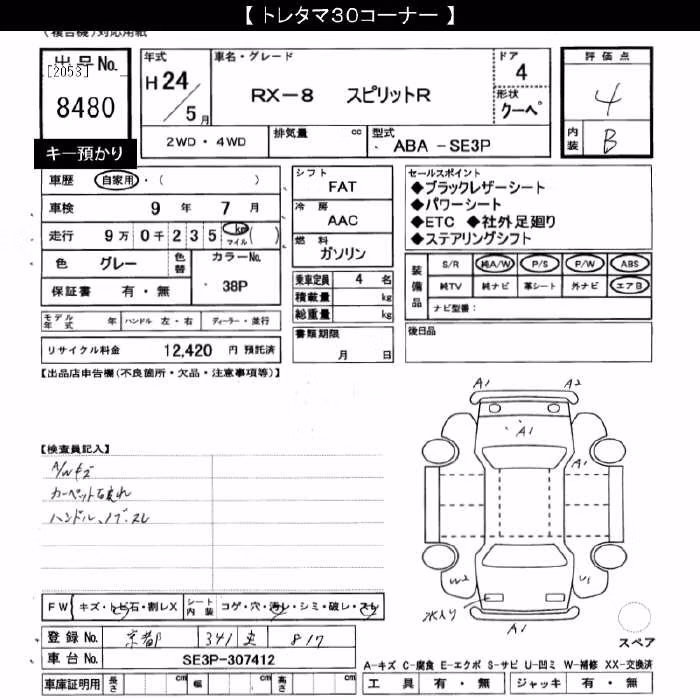 【 トレタマ30コーナー 】
(複合機)対応用紙
出品No.
[2053]
8480
キー預かり
年式
H 24 / 5 月
車名・グレード
RX-8 スピリットR
ドア
4
形状
クーペ
評価点
4
内装
B
2WD・4WD
排気量 cc
型式
ABA - SE3P
車歴 自家用・( )
車検 9 年 7 月
走行 9万0千235 km マイル ( )
色 グレー 色替 カラーNo.
38P
保証書 有・無
シフト
FAT
冷房
AAC
燃料
ガソリン
乗車定員 4 名
積載量 kg
総重量 kg
書類期限
月 日
セールスポイント
◆ブラックレザーシート
◆パワーシート
◆ETC ◆社外足廻り
◆ステアリングシフト
装備品
S/R 純A/W P/S P/W ABS
純TV 純ナビ 革シート 外ナビ エアB
ナビ型番:
後日品
モデル年式 年 ハンドル 左・右 ディーラー・並行
リサイクル料金 12,420 円 預託済
【出品店申告欄(不良箇所・欠品・注意事項等)】
【検査員記入】
A/Wキズ
カーペット汚れ
ハンドル、ノブ、スレ
A1 A2
A1
A1
W2 U1
水入り
A1
スペア
FW キズ・トビ石・割レX シート内装 コゲ・穴・汚レ・シミ・破レ・スレ
登録No. 京都 341 8-17
車台No. SE3P-307412
車庫証明用 長さ cm 幅 cm 高さ cm
A-キズ C-腐食 E-エクボ S-サビ U-凹ミ W-補修 XX-交換済
工具 有・無 ジャッキ 有・無